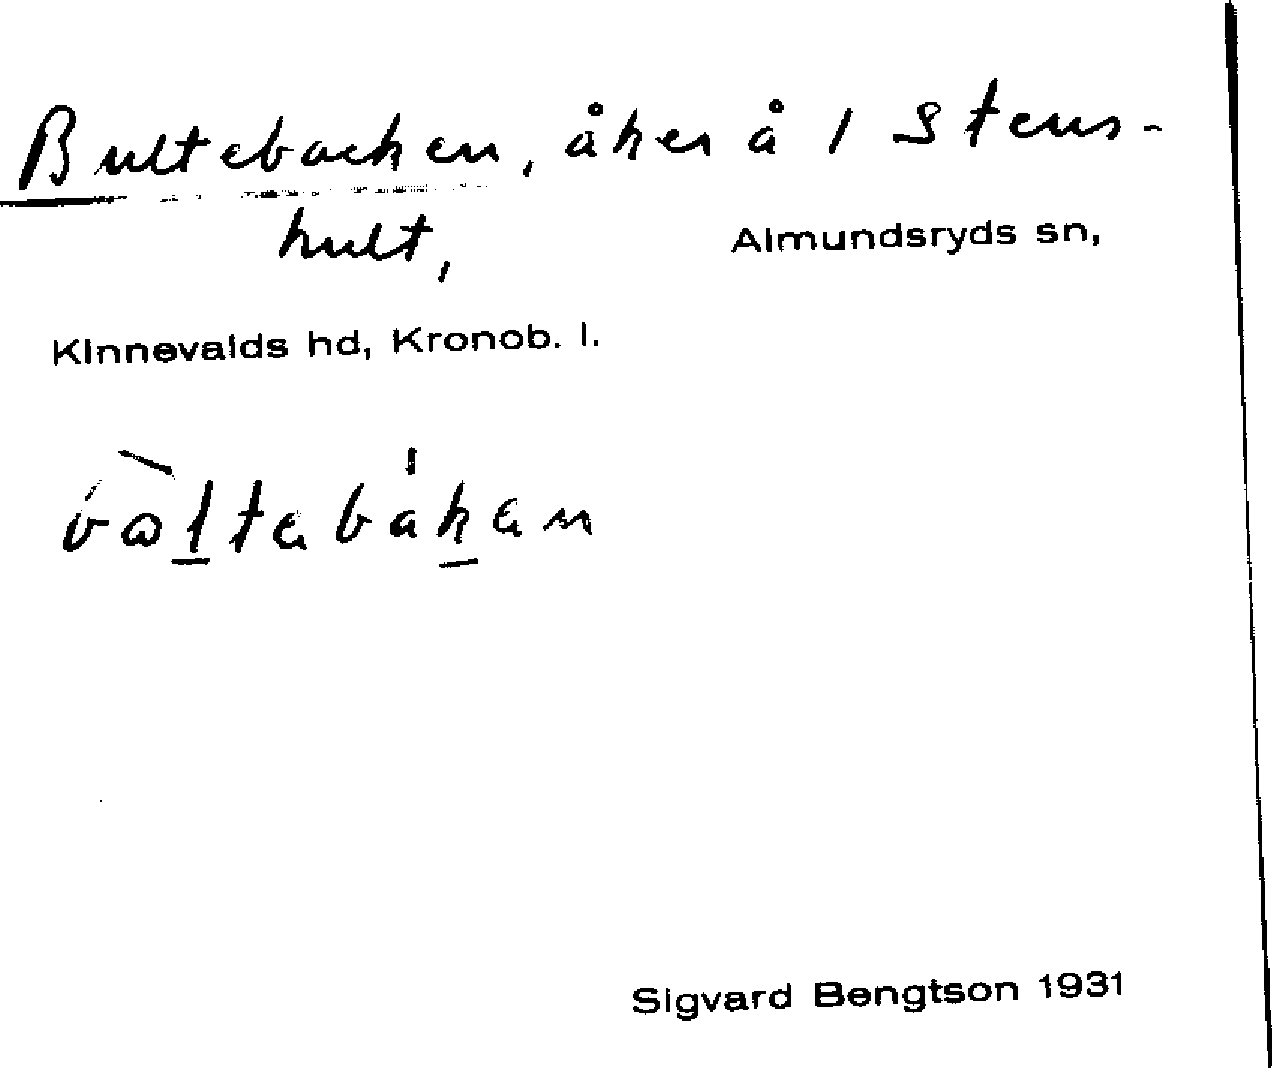 Bultebacken, åker å 1 Stens-
hult, Almundsryds sn,
Kinnevalds hd, Kronob. l.
Sigvard Bengtson 1931